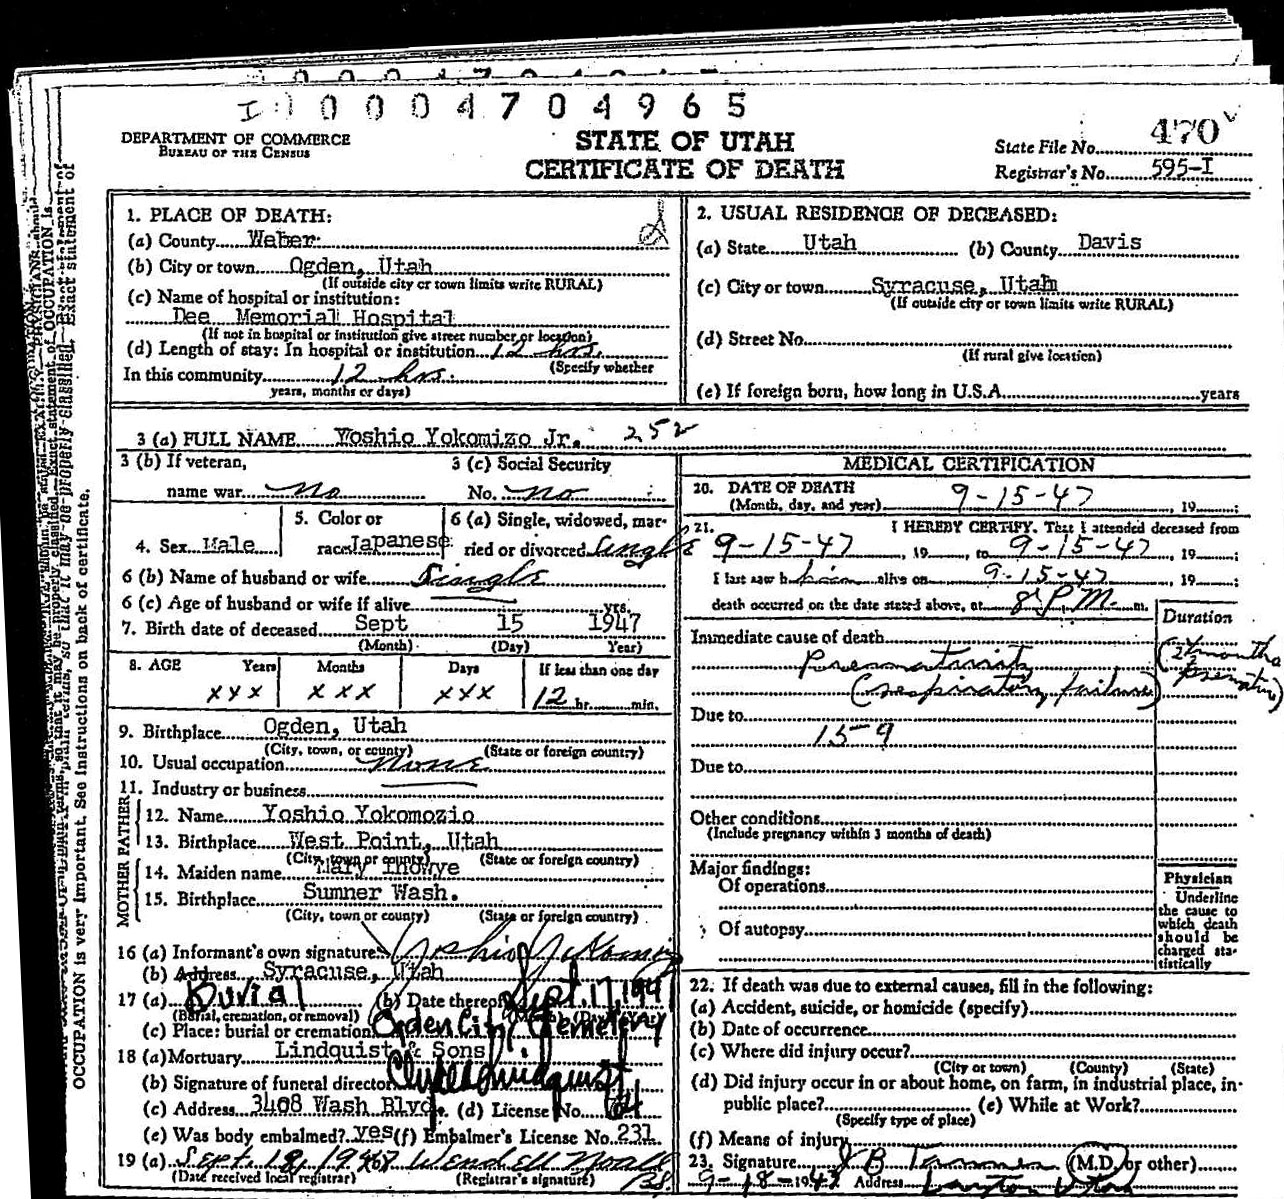 I 00004704965
DEPARTMENT OF COMMERCE
BUREAU OF THE CENSUS
STATE OF UTAH
CERTIFICATE OF DEATH
State File No. 470
Registrar's No. 595-I
OCCUPATION is very important. See instructions on back of certificate.
1. PLACE OF DEATH:
(a) County Weber
(b) City or town Ogden, Utah
(If outside city or town limits write RURAL)
(c) Name of hospital or institution:
Dee Memorial Hospital
(If not in hospital or institution give street number or location)
(d) Length of stay: In hospital or institution 12 hrs.
(Specify whether
In this community 12 hrs.
years, months or days)
2. USUAL RESIDENCE OF DECEASED:
(a) State Utah (b) County Davis
(c) City or town Syracuse, Utah
(If outside city or town limits write RURAL)
(d) Street No.
(If rural give location)
(e) If foreign born, how long in U.S.A. years
3 (a) FULL NAME Yoshio Yokomizo Jr. 252
3 (b) If veteran, 3 (c) Social Security
name war no No. no
4. Sex Male 5. Color or race Japanese 6 (a) Single, widowed, married or divorced Single
6 (b) Name of husband or wife Single
6 (c) Age of husband or wife if alive yrs.
7. Birth date of deceased Sept 15 1947
(Month) (Day) Year)
8. AGE Years Months Days If less than one day
xxx xxx xxx 12 hr. min.
9. Birthplace Ogden, Utah
(City, town, or county) (State or foreign country)
10. Usual occupation None
11. Industry or business
FATHER
12. Name Yoshio Yokomozio
13. Birthplace West Point, Utah
(City, town or county) (State or foreign country)
MOTHER
14. Maiden name Mary Inowye
15. Birthplace Sumner Wash.
(City, town or county) (State or foreign country)
16 (a) Informant's own signature Yoshio Yokomizo
(b) Address Syracuse, Utah
17 (a) Burial (b) Date thereof Sept. 17, 194
(Burial, cremation, or removal) (Month) (Day) (Year)
(c) Place: burial or cremation Ogden City Cemetery
18 (a) Mortuary Lindquist & Sons
(b) Signature of funeral director Clyde Lindquist
(c) Address 3408 Wash Blvd. (d) License No.
(e) Was body embalmed? yes (f) Embalmer's License No. 231
19 (a) Sept. 18, 1947 Wendell Noall
(Date received local registrar) (Registrar's signature)
MEDICAL CERTIFICATION
20. DATE OF DEATH
(Month, day, and year) 9-15-47 , 19 ;
21. I HEREBY CERTIFY, That I attended deceased from
9-15-47 , 19 , to 9-15-47 , 19 ;
I last saw him alive on 9-15-47 , 19 ;
death occurred on the date stated above, at 8 P.M. m.
Duration
Immediate cause of death
Prematurity
(respiratory failure)
Due to
15-9
Due to
Other conditions
(Include pregnancy within 3 months of death)
Major findings:
Of operations
Of autopsy
Physician
Underline
the cause to
which death
should be
charged sta-
tistically
22. If death was due to external causes, fill in the following:
(a) Accident, suicide, or homicide (specify)
(b) Date of occurrence
(c) Where did injury occur?
(City or town) (County) (State)
(d) Did injury occur in or about home, on farm, in industrial place, in-
public place? (e) While at Work?
(Specify type of place)
(f) Means of injury
23. Signature J B (M.D. or other)
9-18-1947 Address Layton Utah